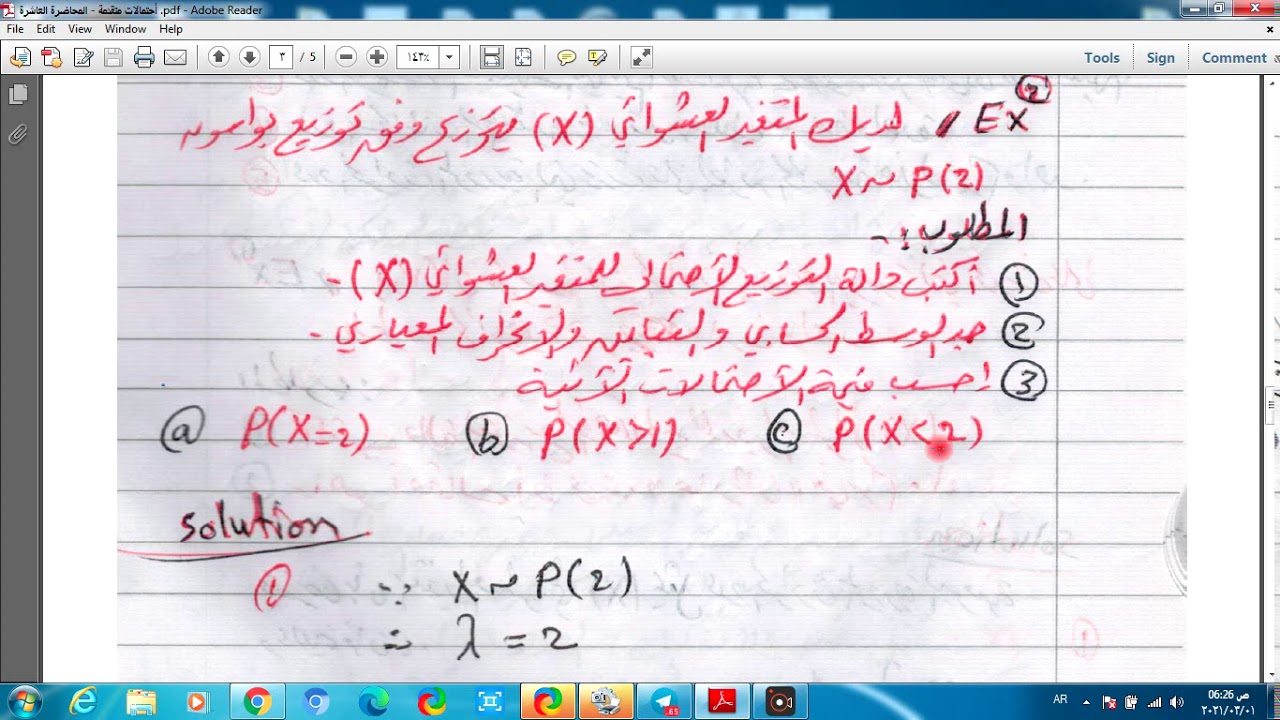 احتمالات متقدمة - المحاضرة العاشرة .pdf - Adobe Reader
File Edit View Window Help
٣ / 5 ١٤٣٪ Tools Sign Comment
Ex ② لديك المتغير العشوائي (X) يتوزع وفق توزيع بواسون
X ~ P(2)
المطلوب :-
① اكتب دالة التوزيع الاحتمالي للمتغير العشوائي (X) -
② جد الوسط الحسابي والتباين والانحراف المعياري -
③ احسب قيمة الاحتمالات الآتية
ⓐ P(X=2) ⓑ P(X>1) ⓒ P(X<2)
solution
① ∵ X ~ P(2)
∴ λ = 2
65
AR
06:26 ص
٢٠٢١/٠٣/٠١